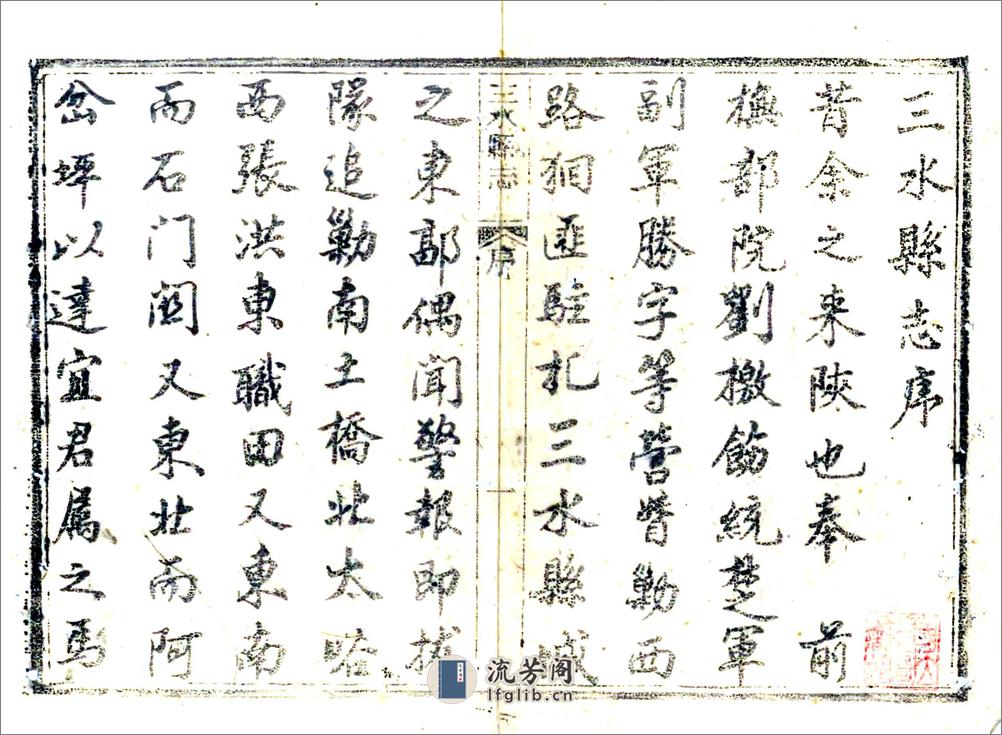 三水縣志序
昔余之来陝也奉　前
撫部院劉檄飭統楚軍
副軍勝字等營督勦西
路狪匪駐札三水縣城
三水縣志　序　一
之東鄙偶聞警報即拔
隊追勦南土橋北太峪
西張洪東職田又東南
而石门関又東北而阿
岔坪以達宜君属之馬
流芳阁
lfglib.cn